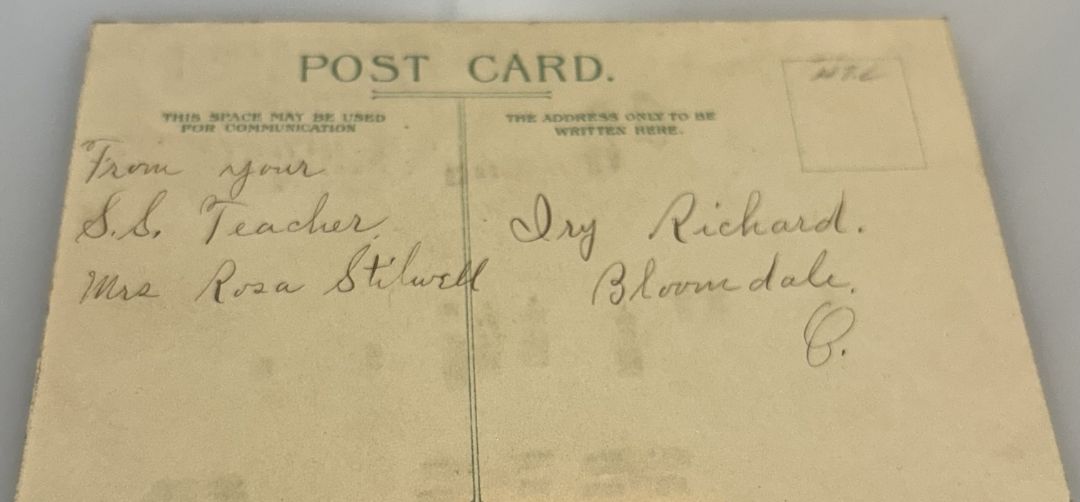 POST CARD.
THIS SPACE MAY BE USED
FOR COMMUNICATION
THE ADDRESS ONLY TO BE
WRITTEN HERE.
From your
S.S. Teacher,
Mrs Rosa Stilwell
Iry Richard.
Bloomdale.
O.